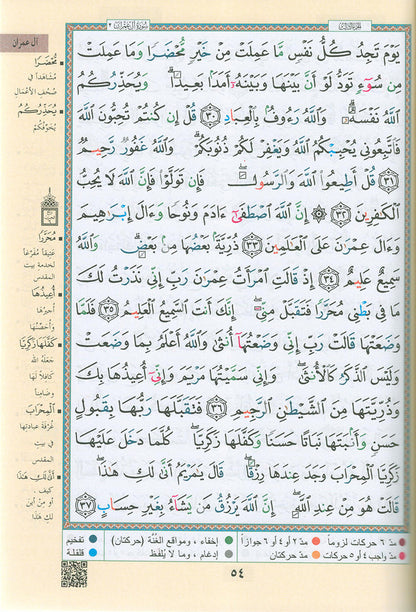 الجزء الثالث
سورة آل عمران ٣
يَوْمَ تَجِدُ كُلُّ نَفْسٍ مَّا عَمِلَتْ مِنْ خَيْرٍ مُّحْضَرًا وَمَا عَمِلَتْ
مِن سُوٓءٍ تَوَدُّ لَوْ أَنَّ بَيْنَهَا وَبَيْنَهُۥٓ أَمَدًۢا بَعِيدًا ۗ وَيُحَذِّرُكُمُ
ٱللَّهُ نَفْسَهُۥ ۗ وَٱللَّهُ رَءُوفٌۢ بِٱلْعِبَادِ ٣٠ قُلْ إِن كُنتُمْ تُحِبُّونَ ٱللَّهَ
فَٱتَّبِعُونِى يُحْبِبْكُمُ ٱللَّهُ وَيَغْفِرْ لَكُمْ ذُنُوبَكُمْ ۗ وَٱللَّهُ غَفُورٌ رَّحِيمٌ
٣١ قُلْ أَطِيعُوا۟ ٱللَّهَ وَٱلرَّسُولَ ۖ فَإِن تَوَلَّوْا۟ فَإِنَّ ٱللَّهَ لَا يُحِبُّ
ٱلْكَٰفِرِينَ ٣٢ ۞ إِنَّ ٱللَّهَ ٱصْطَفَىٰٓ ءَادَمَ وَنُوحًا وَءَالَ إِبْرَٰهِيمَ
وَءَالَ عِمْرَٰنَ عَلَى ٱلْعَٰلَمِينَ ٣٣ ذُرِّيَّةًۢ بَعْضُهَا مِنۢ بَعْضٍ ۗ وَٱللَّهُ
سَمِيعٌ عَلِيمٌ ٣٤ إِذْ قَالَتِ ٱمْرَأَتُ عِمْرَٰنَ رَبِّ إِنِّى نَذَرْتُ لَكَ
مَا فِى بَطْنِى مُحَرَّرًا فَتَقَبَّلْ مِنِّىٓ ۖ إِنَّكَ أَنتَ ٱلسَّمِيعُ ٱلْعَلِيمُ ٣٥ فَلَمَّا
وَضَعَتْهَا قَالَتْ رَبِّ إِنِّى وَضَعْتُهَآ أُنثَىٰ وَٱللَّهُ أَعْلَمُ بِمَا وَضَعَتْ
وَلَيْسَ ٱلذَّكَرُ كَٱلْأُنثَىٰ ۖ وَإِنِّى سَمَّيْتُهَا مَرْيَمَ وَإِنِّىٓ أُعِيذُهَا بِكَ
وَذُرِّيَّتَهَا مِنَ ٱلشَّيْطَٰنِ ٱلرَّجِيمِ ٣٦ فَتَقَبَّلَهَا رَبُّهَا بِقَبُولٍ
حَسَنٍ وَأَنۢبَتَهَا نَبَاتًا حَسَنًا وَكَفَّلَهَا زَكَرِيَّا ۖ كُلَّمَا دَخَلَ عَلَيْهَا
زَكَرِيَّا ٱلْمِحْرَابَ وَجَدَ عِندَهَا رِزْقًا ۖ قَالَ يَٰمَرْيَمُ أَنَّىٰ لَكِ هَٰذَا ۖ
قَالَتْ هُوَ مِنْ عِندِ ٱللَّهِ ۖ إِنَّ ٱللَّهَ يَرْزُقُ مَن يَشَآءُ بِغَيْرِ حِسَابٍ ٣٧
آل عمران
مُّحْضَرًا
مُشَاهَداً في
صُحُف الأعْمَال
يُحَذِّرُكُمُ
يُخَوِّفُكُمْ
مُحَرَّرًا
عَتِيقاً مُفَرَّغاً
لخدمة بيت
المقدس
أُعِيذُهَا
أجيرُهَا
وأحَصِّنُهَا
كَفَّلَهَا زَكَرِيَّا
جَعَلَهُ الله
كافلاً لها
وضامِناً
ٱلْمِحْرَابَ
غُرْفَة عبادتها
في بيت
المقدس
أَنَّىٰ لَكِ هَٰذَا
كيف،
أو مِنْ أينَ
لكِ هَذا
مدّ ٦ حركات لزوماً
مدّ ٢ أو ٤ أو ٦ جوازاً
إخفاء، ومواقع الغُنَّة (حركتان)
تفخيم
مدّ واجب ٤ أو ٥ حركات
مدّ حركتان
إدغام، وما لا يُلفَظ
قلقلة
٥٤